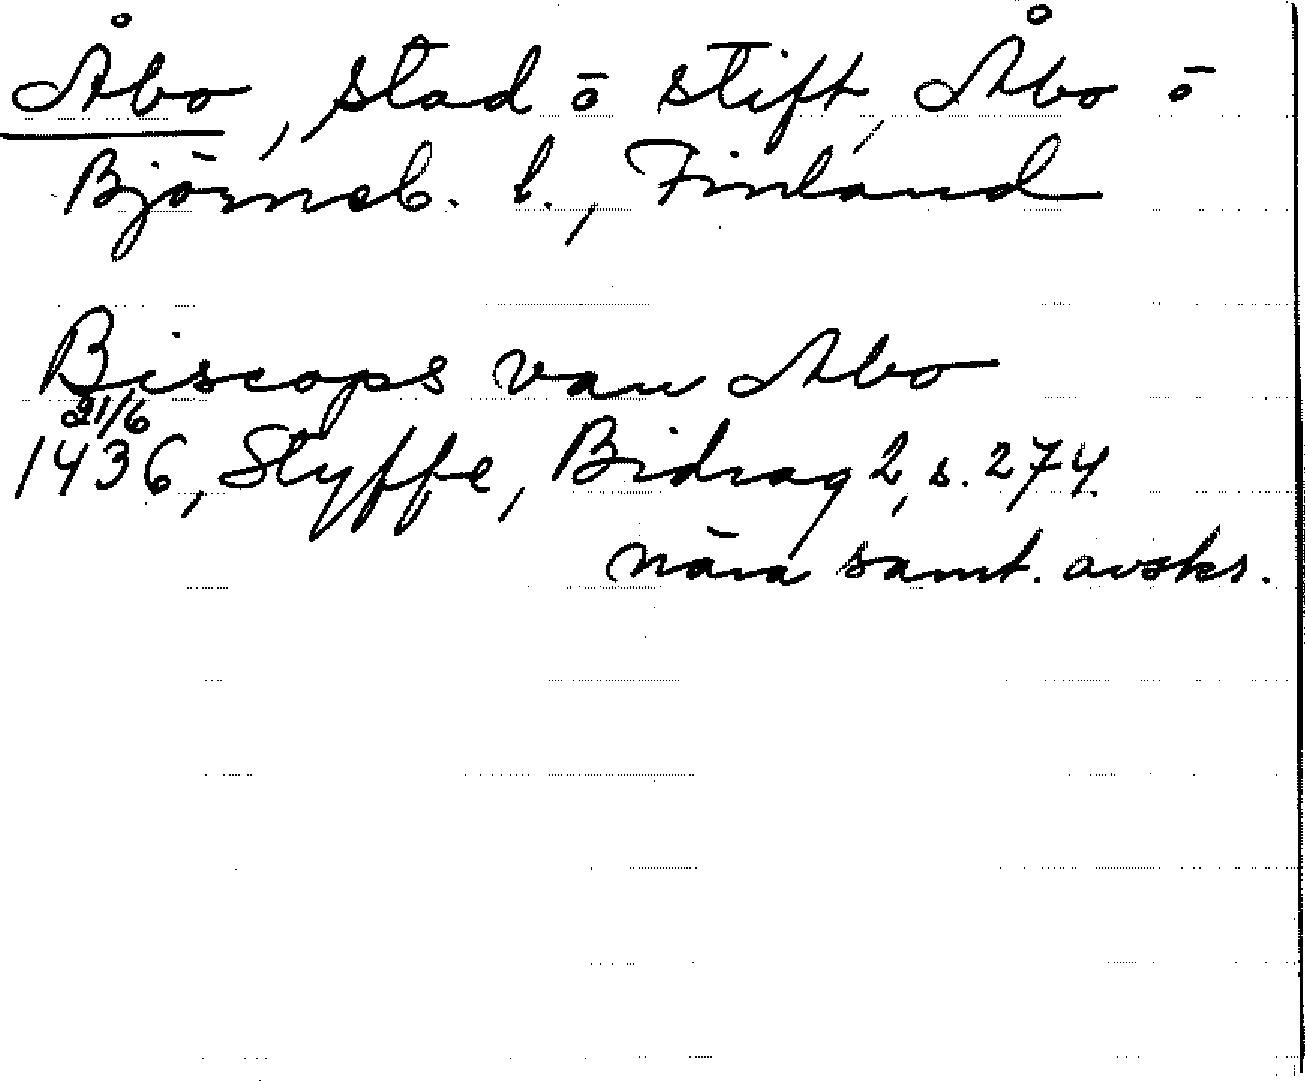 Åbo, stad ö stift, Åbo ö
Björneb. l., Finland
Biscops van Abo
21/6
1436, Styffe, Bidrag 2, s. 274
nära samt. avskr.